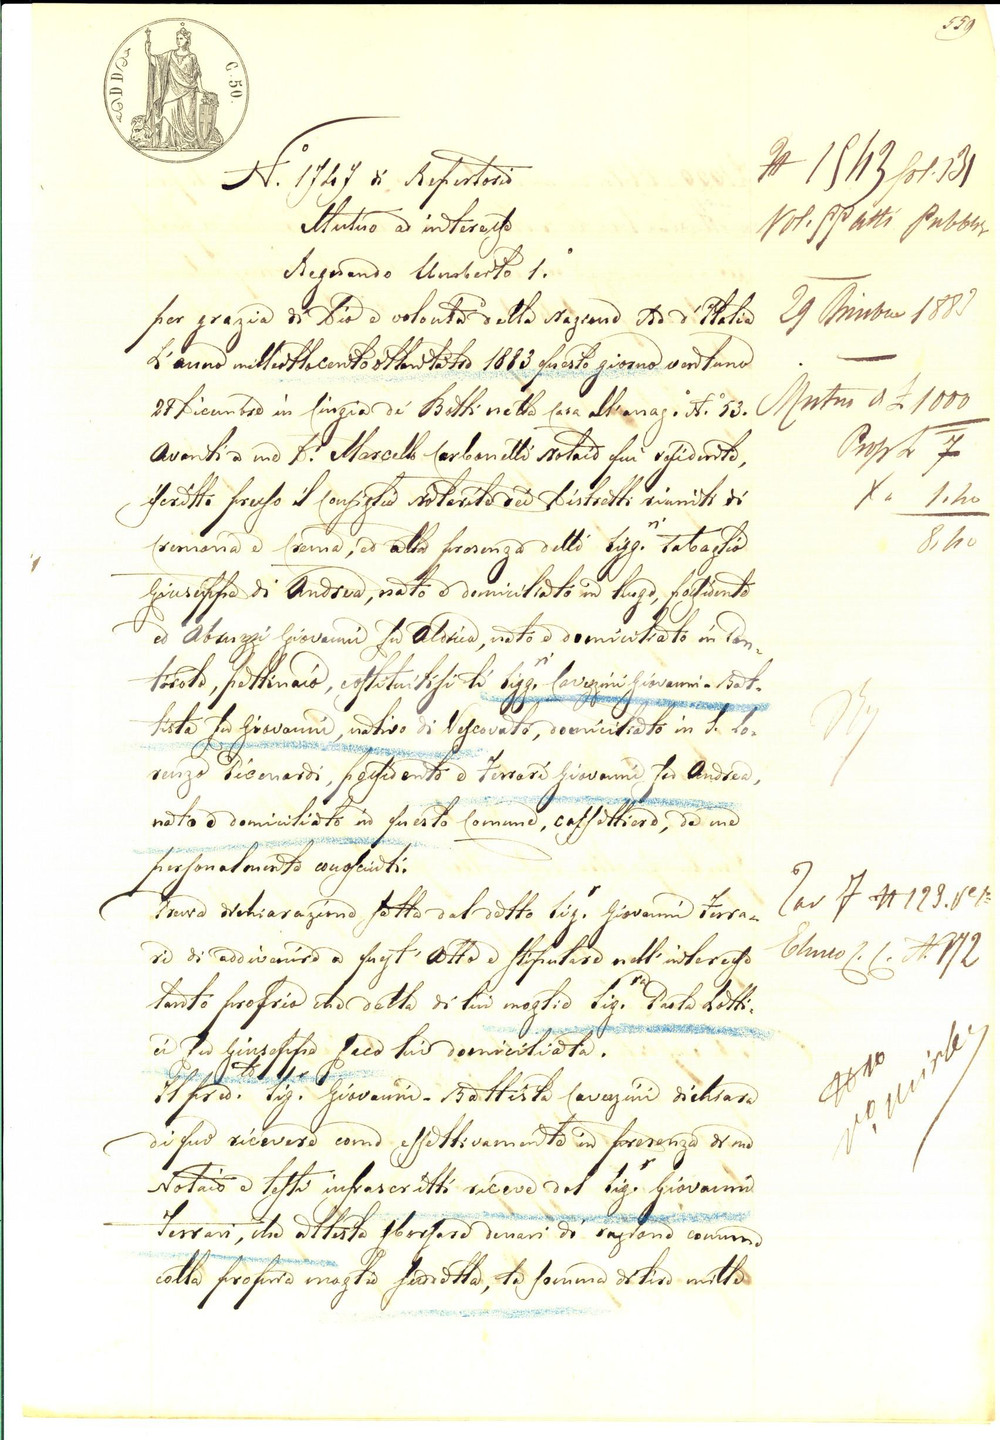 559
DD
C. 50.
N.° 1747 di Repertorio
Mutuo ad interesse
Regnando Umberto 1.°
per grazia di Dio e volontà della Nazione Re d'Italia
L'anno milleottocentottantatre 1883 questo giorno ventuno
21 Dicembre in Cingia de' Botti nella casa all'anag.° N.° 53.
Avanti a me D.r Marcello Carbonelli Notaio qui residente,
iscritto presso il Consiglio Notarile dei Distretti riuniti di
Cremona e Crema, ed alla presenza delli Sigg.ni Tabaglio
Giuseppe di Andrea, nato e domiciliato in luogo, possidente
ed Abruzzi Giovanni fu Aldrica, nato e domiciliato in
pettinaio, costituitisi li Sigg.ni Cavezzini Giovanni-Bat-
tista fu Giovanni, nativo di Vescovato, domiciliato in S. Lo-
renzo Picenardi, possidente e Ferrari Giovanni fu Andrea,
nato e domiciliato in questo Comune, caffettiere, da me
personalmente conosciuti.
Previa dichiarazione fatta dal detto Sig.r Giovanni Ferra-
ri di addivenire a quest'Atto e stipulare nell'interesse
tanto proprio che della di lui moglie Sig.ra Paola Lotti-
ci fu Giuseppe seco lui domiciliata.
Il pred.to Sig.r Giovanni-Battista Cavezzini dichiara
di quì ricevere come effettivamente in presenza di me
Notaio e testi infrascritti riceve dal Sig.r Giovanni
Ferrari, che attesta sborsare denari di ragione comune
colla propria moglie suddetta, la somma di lire mille
N 1543 fol. 131
Vol. Atti Pubblici
29 Dicembre 1883
Mutuo di £ 1000
7
1.20
8.20
Tav 7 N 123.
Elenco C. C. N. 172